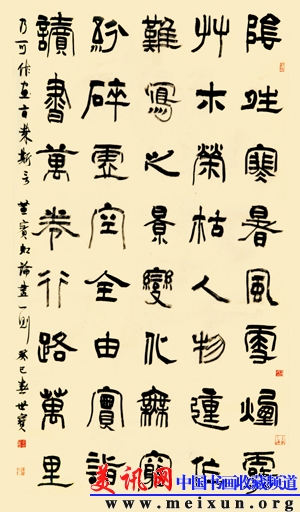 陰晴寒暑風雪煙雲
艸木榮枯人物作
難寫之景變化無窮
粉碎虛空全由實詣
讀書萬卷行路萬里
乃可作画旨哉斯言 黄賓虹論畫一則 癸巳春世寶
美讯网 中国书画收藏频道
www.meixun.org